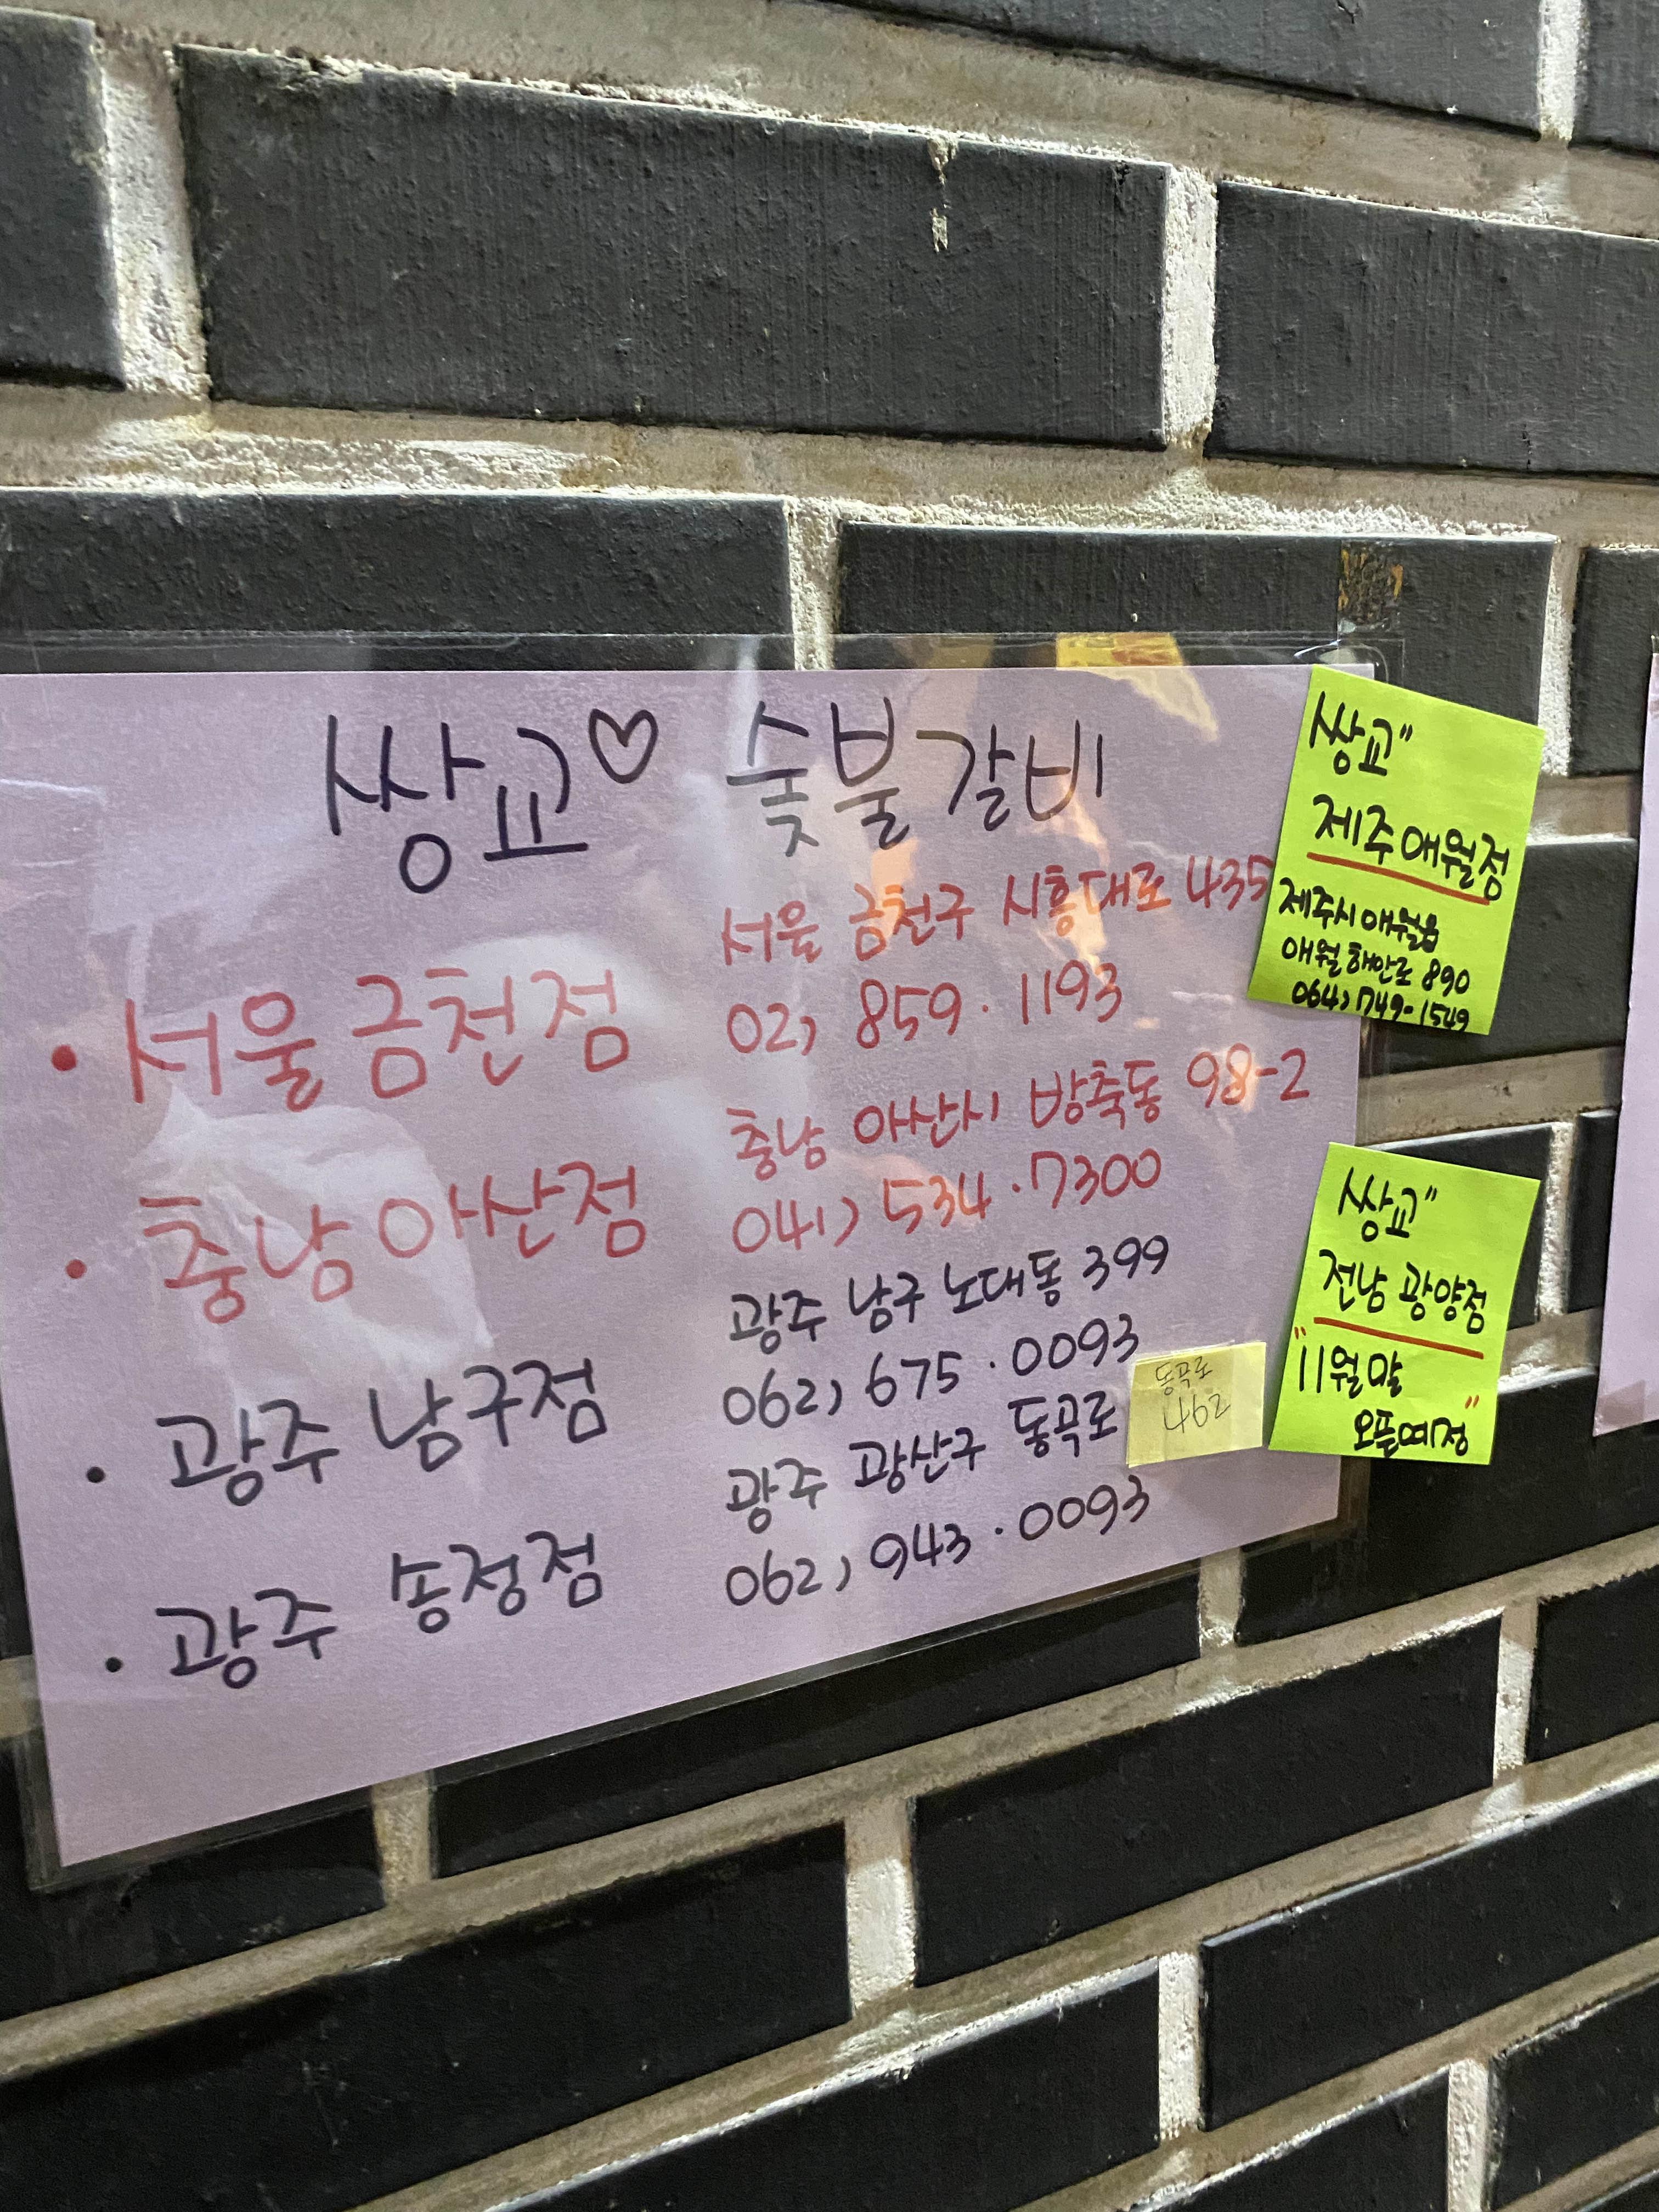 쌍교♡ 숯불갈비
• 서울 금천점
서울 금천구 시흥대로 435
02) 859·1193
• 충남 아산점
충남 아산시 방축동 98-2
041) 534·7300
• 광주 남구점
광주 남구 노대동 399
062) 675·0093
• 광주 송정점
광주 광산구 동곡로
062) 943·0093
동곡로
462
쌍교"
제주애월점
제주시애월읍
애월해안로 890
064) 749-1549
쌍교"
전남 광양점
"11월말
오픈예정"